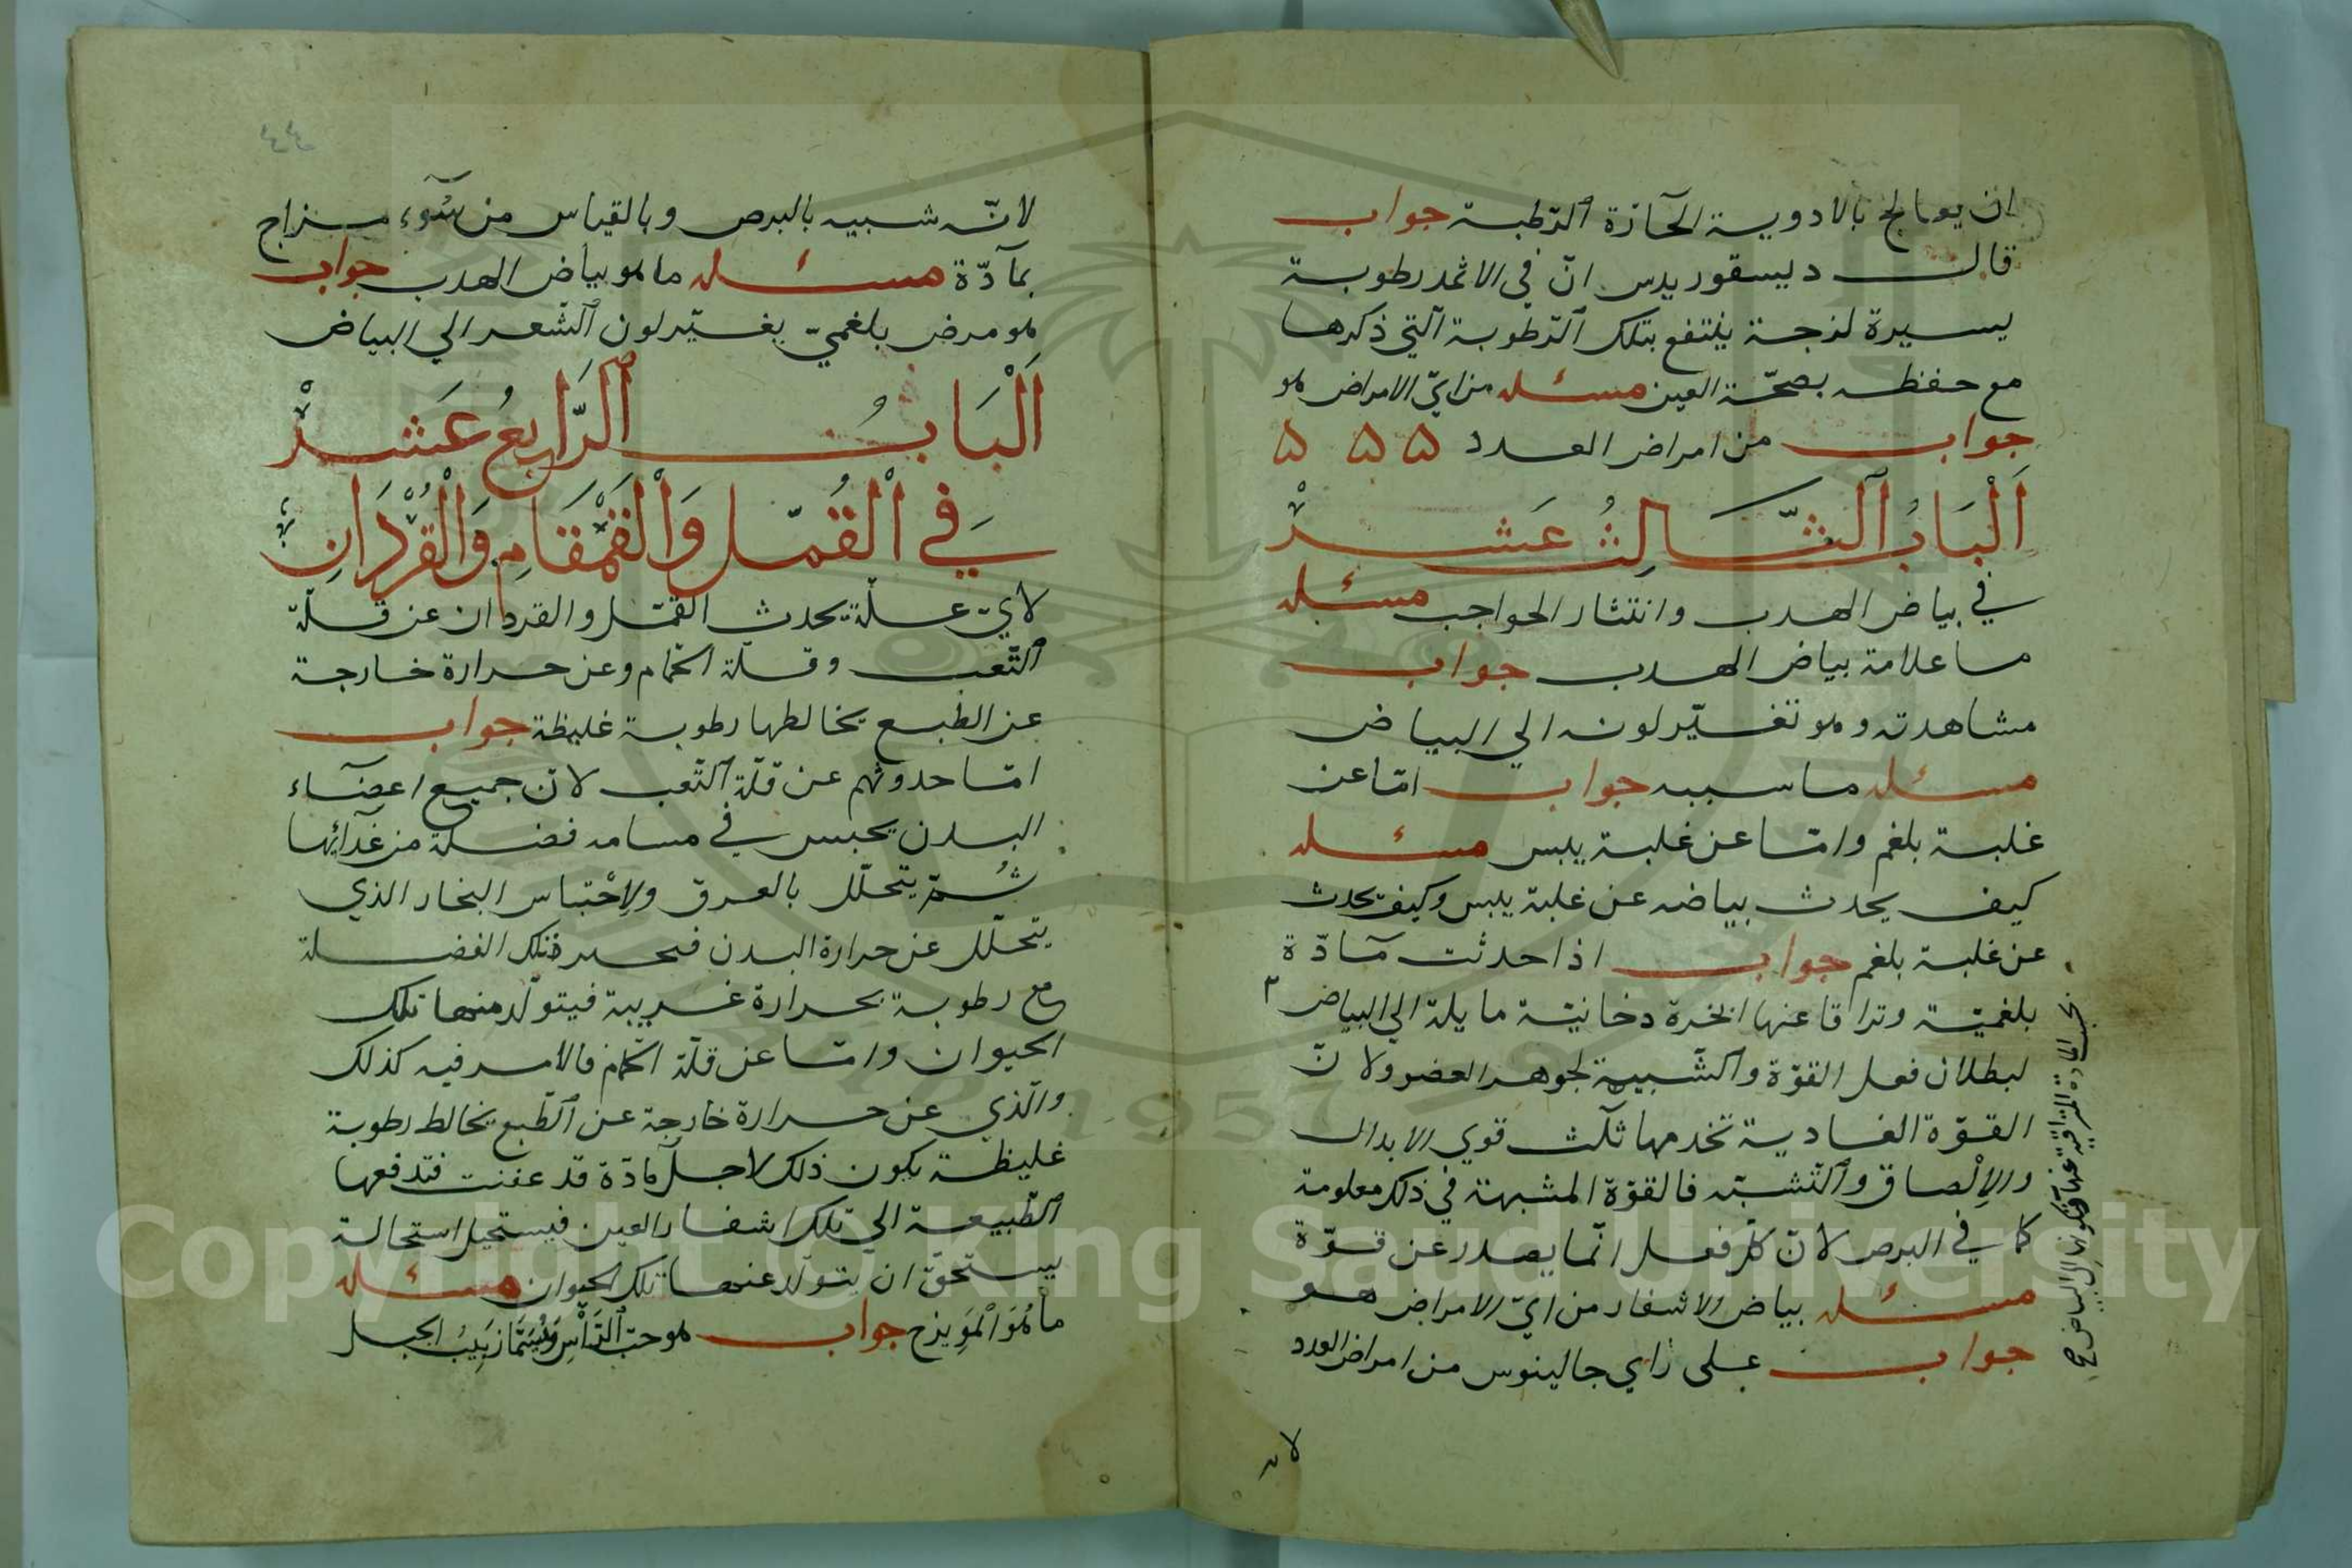 ان يعالج بالادوية الحآرّة ٱلرّطبة جواب
قال ديسقوريدس انّ في الاثمد رطوبة
يسيرة لزجة ينتفع بتلك ٱلرّطوبة ٱلتي ذكرها
مع حفظه بصحّة العين مسئله من ايّ الامراض هو
جواب من امراض العدد ۵ ۵ ۵
اَلْبَابُ ٱلثَّالِثُ عَشْر
في بياض الهدب وانتثار الحواجب مسئله
ما علامة بياض الهدب جواب
مشاهدته وهو تغيّر لونه الي البياض
مسئله ما سببه جواب امّا عن
غلبة بلغم وامّا عن غلبة يبس مسئله
كيف يحدث بياضه عن غلبة يبس وكيف يحدث
عن غلبة بلغم جواب اذا حدثت مآدّة
بلغميّة وتراقا عنها ابخرة دخانيّة مايلة الي البياض
لبطلان فعل القوّة وٱلشّبيهة لجوهر العضو ولانّ
القوّة الغادية تخدمها ثلث قوي الابدال
والاِلْصاق وٱلتّشبّه فالقوّة المشبهة في ذلك معلومة
كما في البرص لانّ كلّ فعل انّما يصدر عن قوّة
مسئله بياض الاشفار من ايّ الامراض هو
جواب على رأي جالينوس من امراض العدد
لانه
٤٤
لانّه شبيه بالبرص وبالقياس من سُوء مزاج
بمآدّة مسئله ما هو بياض الهدب جواب
هو مرض بلغميّ يغيّر لون ٱلشّعر الي البياض
اَلْبَابُ ٱلرَّابِعُ عَشْر
فِي الْقُمَّل وَالْقَمْقَامِ وَالْقُرْدَانِ
لايّ علّة يحدث القمّل والقردان عن قلّة
ٱلتّعب وقلّة الحمّام وعن حرارة خارجة
عن الطبع يخالطها رطوبة غليظة جواب
امّا حدوثهم عن قلّة ٱلتّعب لانّ جميع اعضآء
البدن يحبس في مسامه فضلة من غذآئها
ثُمّ يتحلّل بالعرق ولاِحْتباس البخار الذي
يتحلّل عن حرارة البدن تلك الفضلة
مع رطوبة بحرارة غريبة فيتولّد منها تلك
الحيوان وامّا عن قلّة الحمّام فالامر فيه كذلك
والّذي عن حرارة خارجة عن ٱلطّبع يخالط رطوبة
غليظة يكون ذلك لاجل مادّة قد عفنت فتدفعها
ٱلطّبيعة الي تلك اشفار العين فيستحيل استحالة
يستحقّ ان يتولّد عنها تلك الحيوان مسئله
ما هُوَ الْمَوِيزج جواب هو حبّ ٱلرَّأْسِ وَيُسَمَّا زَبِيبُ الجبل